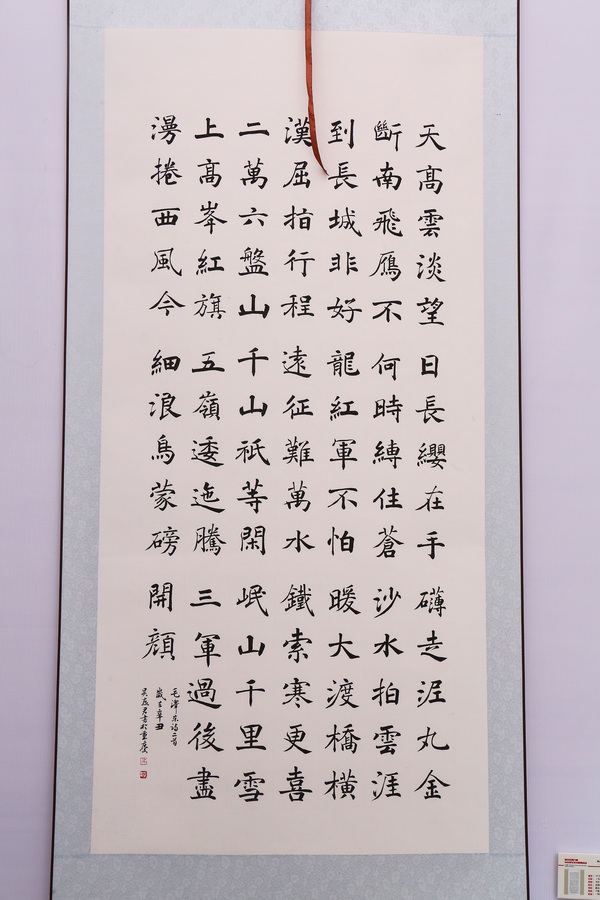 天高雲淡望
斷南飛鴈不
到長城非好
漢屈指行程
二萬六盤山
上高峯紅旗
漫捲西風今
日長纓在手
何時縛住蒼
龍紅軍不怕
遠征難萬水
千山祇等閑
五嶺逶迤騰
細浪烏蒙磅
礴走泥丸金
沙水拍雲涯
暖大渡橋橫
鐵索寒更喜
岷山千里雪
三軍過後盡
開顏
毛澤东詩二首
歲在辛丑
君書於重慶